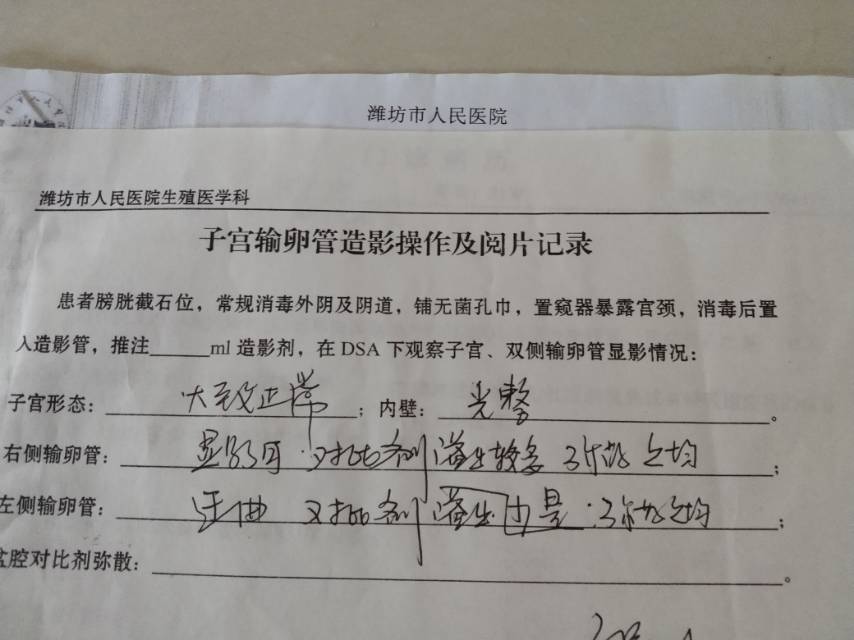 潍坊市人民医院
潍坊市人民医院生殖医学科
子宫输卵管造影操作及阅片记录
患者膀胱截石位，常规消毒外阴及阴道，铺无菌孔巾，置窥器暴露宫颈，消毒后置
入造影管，推注______ml 造影剂，在 DSA 下观察子宫、双侧输卵管显影情况：
子宫形态：大致正常；内壁：光整。
右侧输卵管：显影可 对比剂溢出较多 弥散欠均；
左侧输卵管：迂曲 对比剂溢出少量 弥散欠均；
盆腔对比剂弥散：。